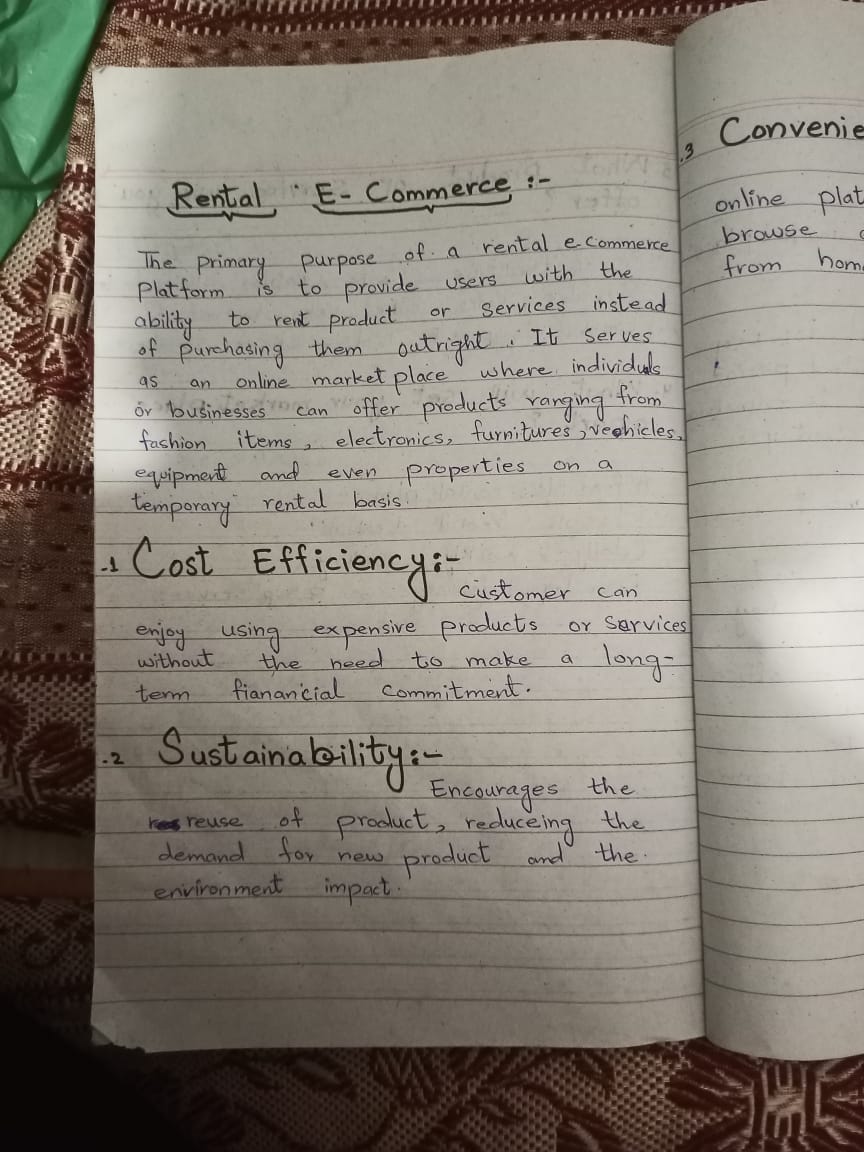 Rental E-Commerce :-
The primary purpose of a rental e commerce
Platform is to provide users with the
ability to rent product or services instead
of purchasing them outright. It serves
as an online market place where individuls
or businesses can offer products ranging from
fashion items, electronics, furnitures, veohicles,
equipment and even properties on a
temporary rental basis.
.1 Cost Efficiency:-
Customer can
enjoy using expensive products or services
without the need to make a long-
term fianancial commitment.
.2 Sustainability:-
Encourages the
reuse of product, reduceing the
demand for new product and the
environment impact.
.3 Convenie
online plat
browse
from hom